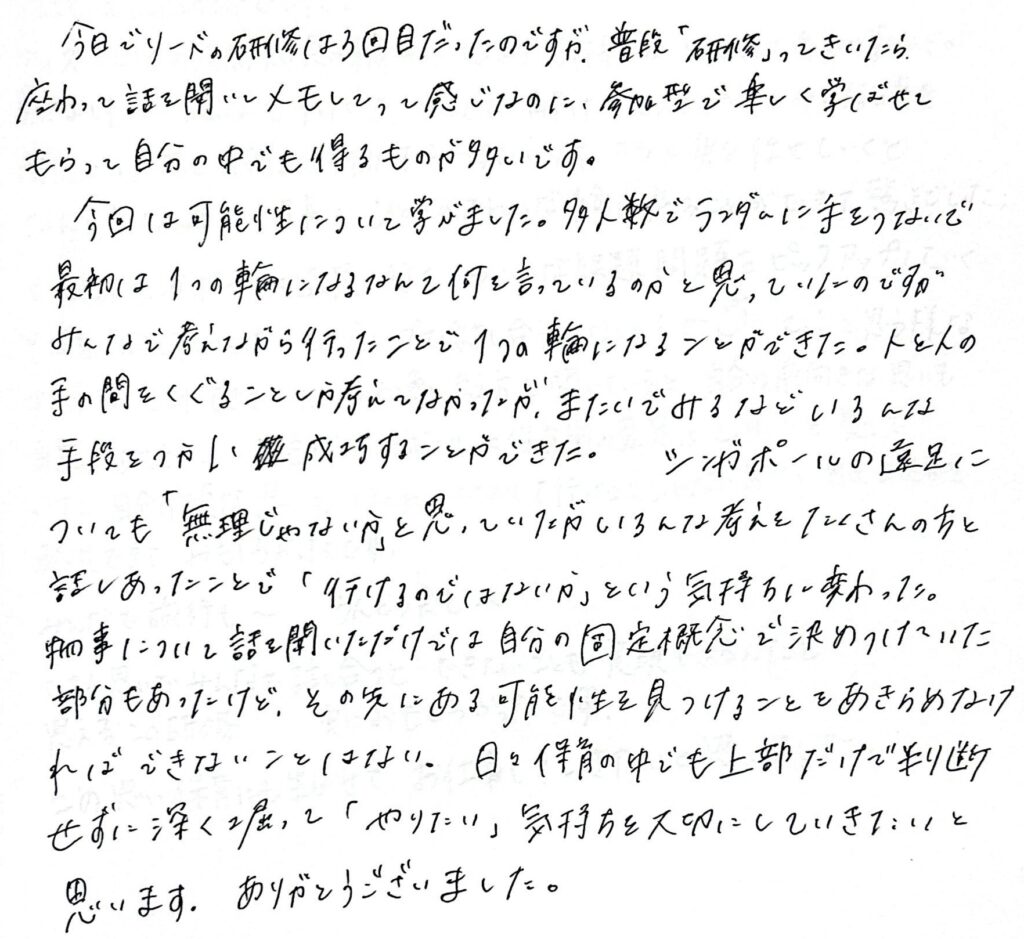 今日でリードの研修は3回目だったのですが、普段「研修」ってきいたら、
座わって話を聞いてメモしてって感じなのに、参加型で楽しく学ばせて
もらって自分の中でも得るものが多いです。
今回は可能性について学びました。多人数でランダムに手をつないで
最初は1つの輪になるなんて何を言っているのかと思っていたのですが
みんなで考えながら行ったことで1つの輪になることができた。人と人の
手の間をくぐることしか考えてなかったが、またいでみるなどいろんな
手段をつかい 成功することができた。 シンガポールの遠足に
ついても「無理じゃないか」と思っていたがいろんな考えをたくさんの方と
話しあったことで「行けるのではないか」という気持ちに変わった。
物事について話を聞いただけでは自分の固定概念で決めつけていた
部分もあったけど、その先にある可能性を見つけることをあきらめなけ
ればできないことはない。日々保育の中でも上部だけで判断
せずに深く掘って「やりたい」気持ちを大切にしていきたいと
思います。ありがとうございました。